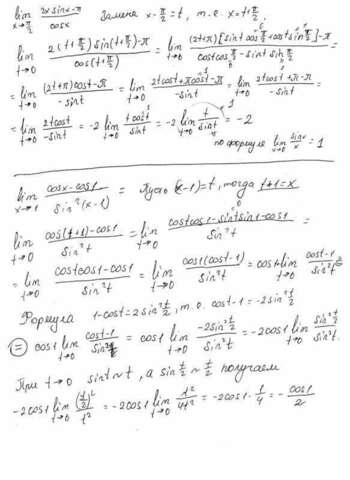 lim x→π/2 (2x sinx-π)/cosx Замена x-π/2=t, т.е. x=t+π/2.
lim t→0 (2(t+π/2)sin(t+π/2)-π)/cos(t+π/2) = lim t→0 ((2t+π)[sint cosπ/2+cost sinπ/2]-π)/(cost cosπ/2-sint sinπ/2) =
= lim t→0 ((2t+π)cost-π)/-sint = lim t→0 (2tcost+πcost-π)/-sint = lim t→0 (2tcost+π-π)/-sint =
= lim t→0 2tcost/-sint = -2 lim t→0 tcost/sint = -2 lim t→0 t/sint = -2
по формуле lim x→0 sinx/x = 1
lim x→1 (cosx-cos1)/sin²(x-1) = Пусть (x-1)=t, тогда t+1=x
lim t→0 (cos(t+1)-cos1)/sin²t = lim t→0 (cost cos1-sint sin1-cos1)/sin²t =
= lim t→0 (cost cos1-cos1)/sin²t = lim t→0 cos1(cost-1)/sin²t = cos1 lim t→0 (cost-1)/sin²t =
Формула 1-cost=2sin²t/2, т.е. cost-1=-2sin²t/2
= cos1 lim t→0 (cost-1)/sin²t = cos1 lim t→0 (-2sin²t/2)/sin²t = -2cos1 lim t→0 (sin²t/2)/sin²t.
При t→0 sint~t, а sin t/2 ~ t/2 получаем
-2cos1 lim t→0 (t/2)²/t² = -2cos1 lim t→0 t²/4t² = -2cos1·1/4 = -cos1/2